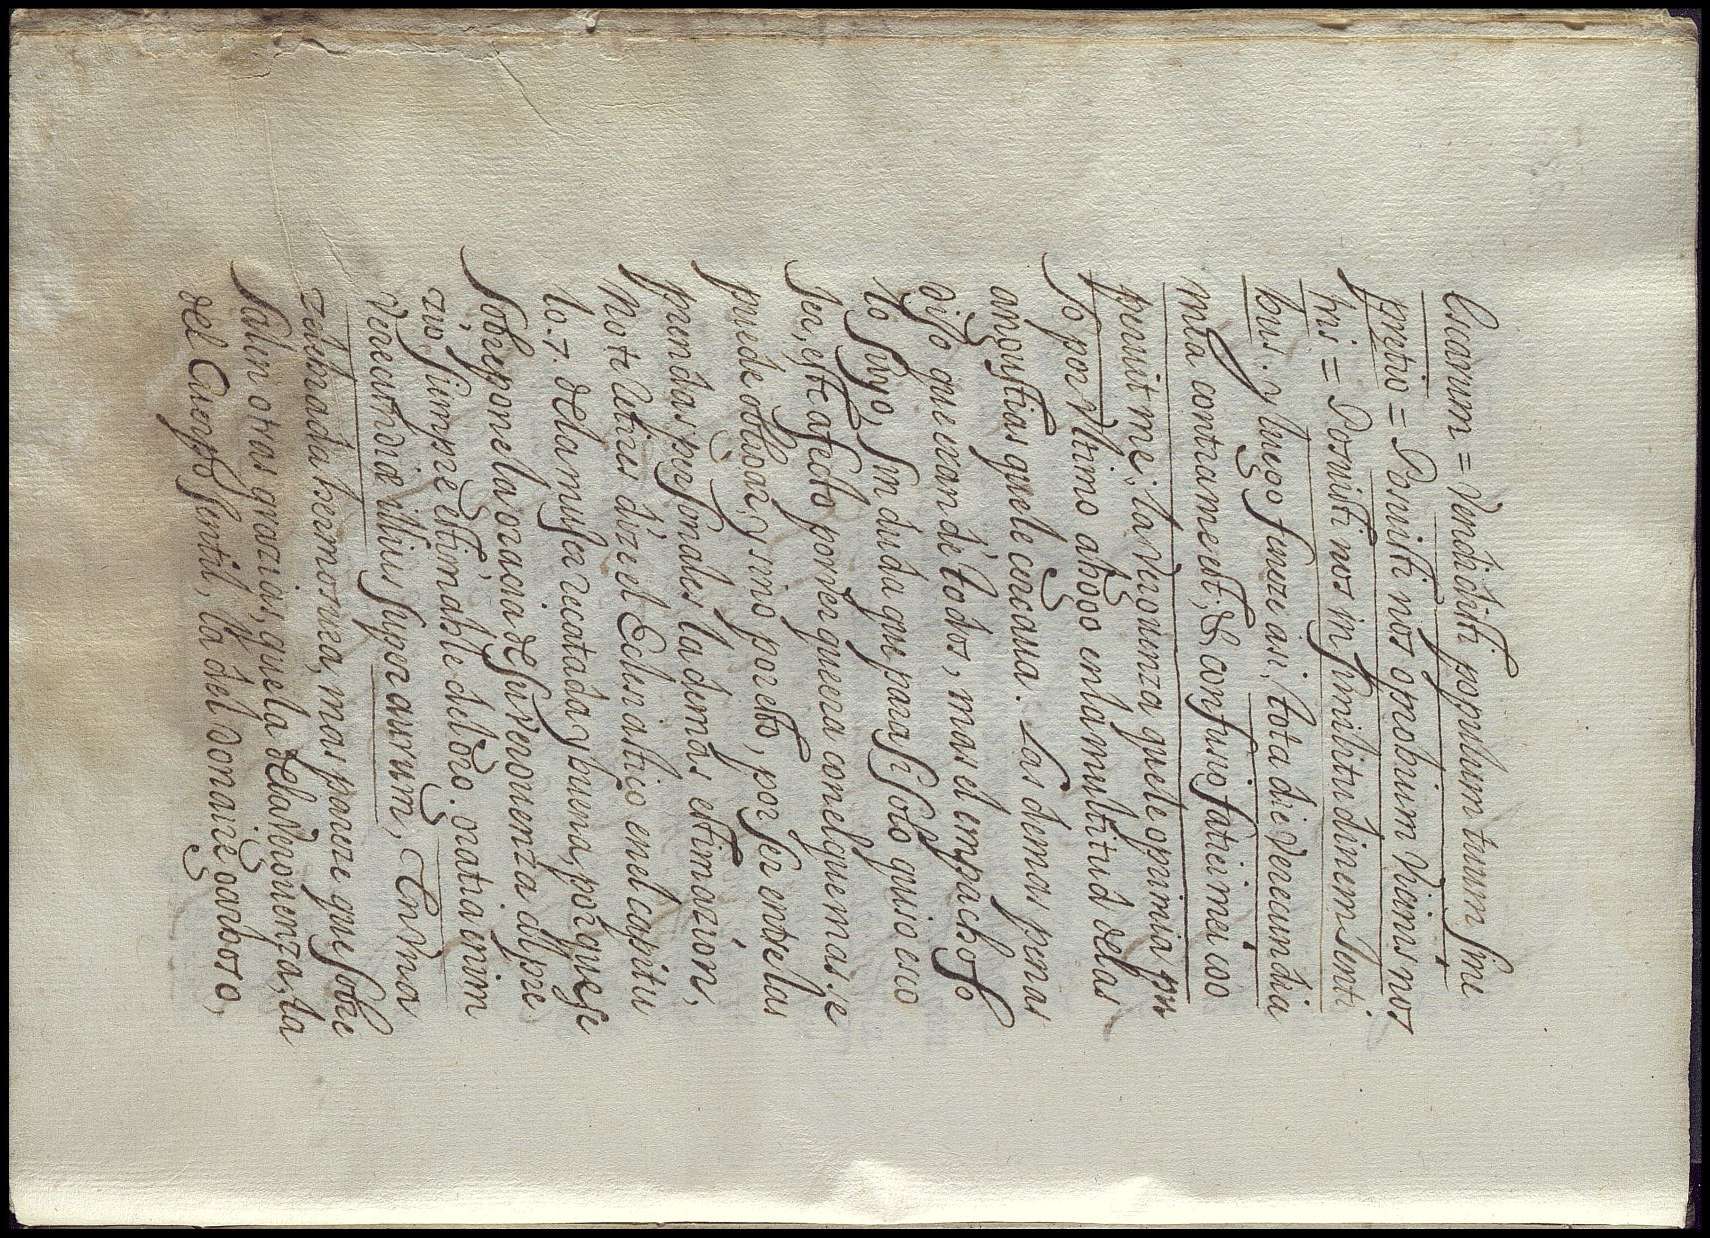 scarum = Vendidisti populum tuum sine
pretio = Posuisti nos oprobium Vicinis nos
tris = Posuisti nos in similitudinem Genti
bus. y luego fineze asi, tota die verecundia
mea contra me est, & confusio faciei mei coo
peruit me; la Verguenza que le oprimia pu
so por Ultimo ahogo en la multitud de las
angustias que le cercaua. Las demas penas
dijo que eran de todos, mas el empacho so
lo suyo, sin duda que para si solo quiso esco
jer, este afecto por ver que era con el que mas se
puede obligar, y sino por esto, por ser entre las
prendas personales la de mas estimazion,
Note latires dize el Eclesiastico en el capitu
lo. 7. de la muger recatada y buena, porque se
sobrepone la gracia de su verguenza al pre
zio, siempre estimable del oro. gratia enim
verecundiæ illius super aurum, En Una
zelebrada hermosura, mas parece que sobre
salen otras grazias, que la de la Verguenza, la
del Cuerpo gentil, la del donaire garboso,